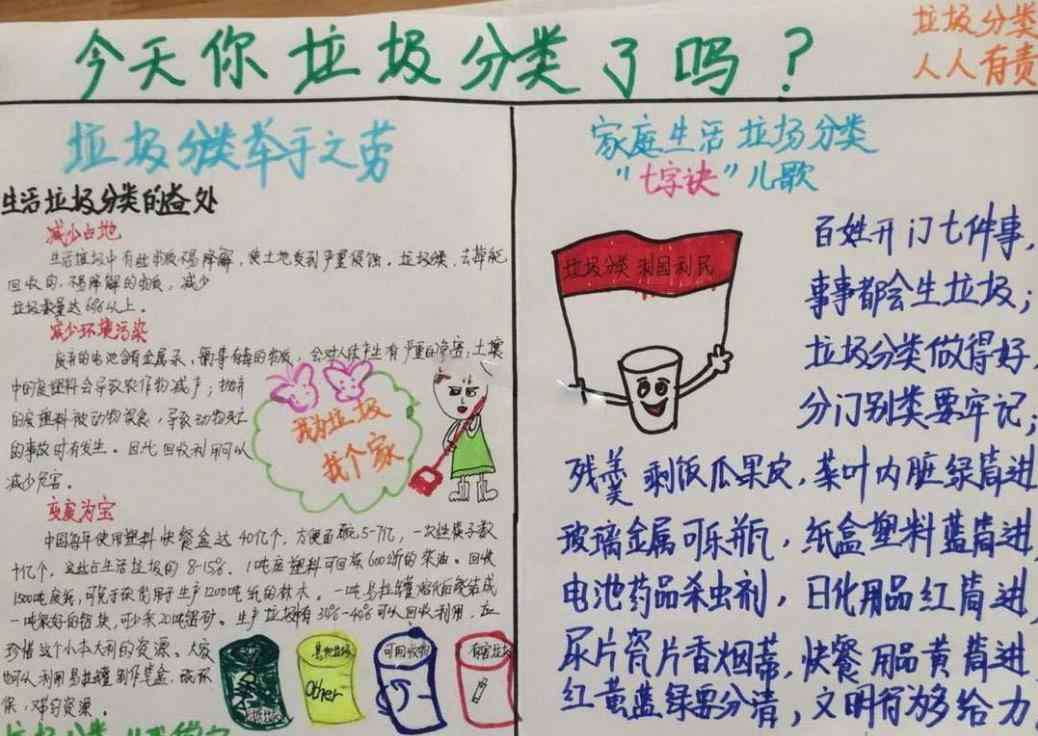 今天你垃圾分类了吗？
垃圾分类
人人有责
垃圾分类举手之劳
生活垃圾分类的益处
减少占地
生活垃圾中有些物质不易降解，使土地受到严重侵蚀。垃圾分类，去掉能
回收的，不易降解的物质，减少
垃圾数量达60%以上。
减少环境污染
废弃的电池含有金属汞、镉等有毒的物质，会对人体产生有严重的危害；土壤
中的废塑料会导致农作物减产；抛弃
的废塑料被动物误食，导致动物死亡
的事故时有发生。因此回收利用可以
减少危害。
变废为宝
中国每年使用塑料快餐盒达40亿个，方便面碗5-7亿，一次性筷子数
十亿个，这些占生活垃圾的8-15%。1吨废塑料可回炼600斤的柴油。回收
1500吨废纸，可免于砍伐用于生产1200吨纸的林木。一吨易拉罐溶化后能结成
一吨很好的铝块，可少采20吨铝矿。生产垃圾有30%-40%可以回收利用，应
珍惜这个小本大利的资源。大家
也可以利用易拉罐制作笔盒，既环
保，
资源。
为垃圾
找个家
其他垃圾
Other
可回收物
有害垃圾
家庭生活垃圾分类
“七字诀”儿歌
垃圾分类 利国利民
百姓开门七件事，
事事都会生垃圾；
垃圾分类做得好，
分门别类要牢记；
残羹剩饭瓜果皮，菜叶内脏绿筒进
玻璃金属可乐瓶，纸盒塑料蓝筒进
电池药品杀虫剂，日化用品红筒进
尿片瓷片香烟蒂，快餐用品黄筒进
红黄蓝绿要分清，文明行为多给力